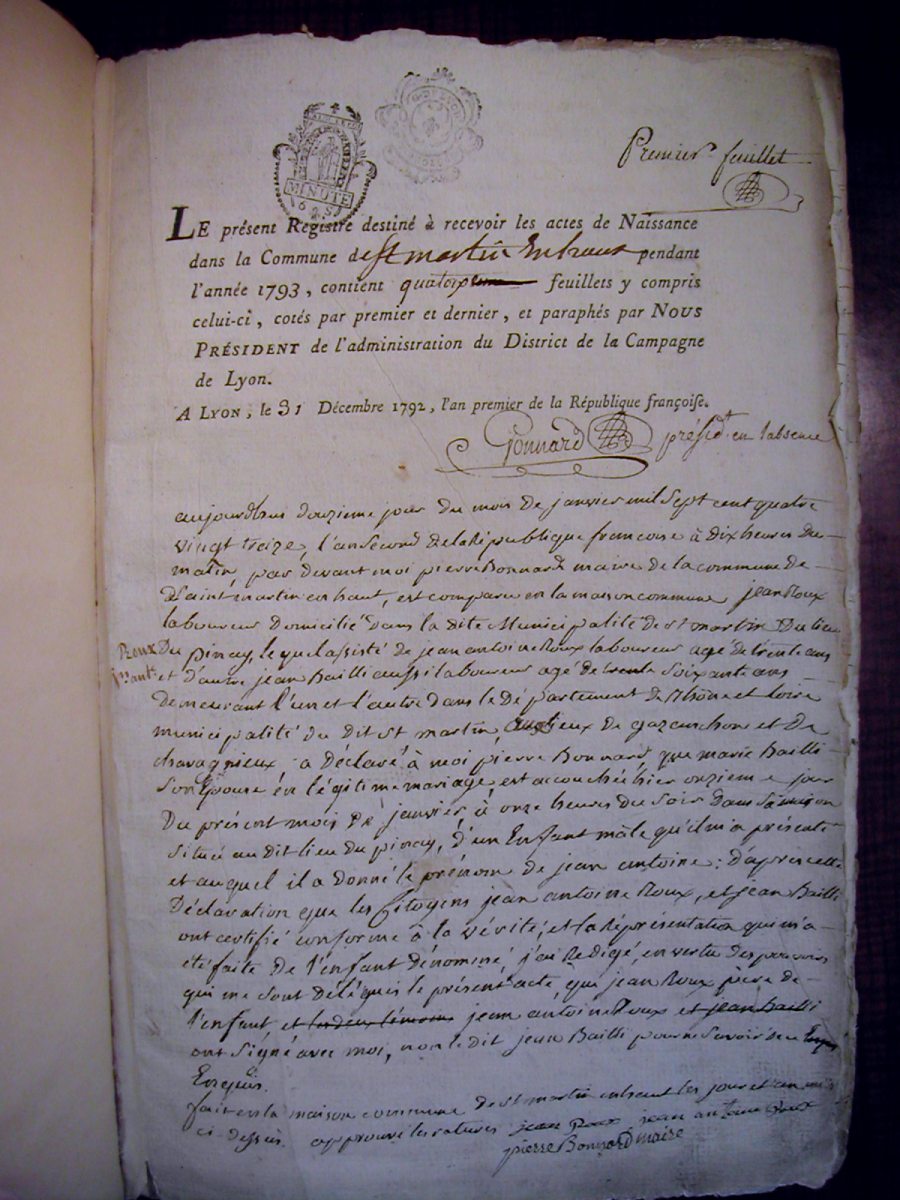 Premier feuillet
MINUTE
LE présent Registre destiné à recevoir les actes de Naissance
dans la Commune de St martin Enhaut pendant
l'année 1793, contient quatorze feuillets y compris
celui-ci, cotés par premier et dernier, et paraphés par NOUS
PRÉSIDENT de l'administration du District de la Campagne
de Lyon.
A LYON, le 31 Décembre 1792, l'an premier de la République françoise.
Gonnard présidt en l'absence
aujourdhui douzieme jour du mois de janvier mil sept cent quatre
vingt treize, l'an second de la République francoise à dix heures du
matin, par devant moi pierre Bonnard maire de la commune de
Saint martin en haut, est comparu en la maison commune jean Roux
laboureur domicilié dans la dite Municipalité de st martin Du lieu
Roux
Du pinay, le quel assisté de jean antoine Roux laboureur agé de trente ans
jn ante
et d'autre jean Bailli aussi laboureur agé de trente soixante ans
demeurant l'un et l'autre dans le Département de Rhône et Loire
municipalité du dit st martin aux lieux de gazanchon et de
chavagnieux a déclaré à moi pierre Bonnard que marie Bailli
son Epouse en légitime mariage, est accouché hier onzieme jour
Du présent mois de janvier, à onze heures du soir dans sa maison
située au dit lieu du pinay, d'un Enfant mâle qu'il m'a présenté
et auquel il a donné le prénom de jean antoine : d'après cette
Déclaration que les Citoyens jean antoine Roux, et jean Bailli
ont certifié conforme à la vérité, et la Représentation qui m'a
été faite de l'enfant dénommé, j'ai Redigé, en vertu des pouvoirs
qui me sont délégués le présent acte que jean Roux père de
l'enfant, et les deux témoins jean antoine Roux et jean Bailli
ont signé avec moi, non le dit jean Bailli pour ne savoir de ce
Enquis.
fait en la maison commune de st martin enhaut les jour et an
ci dessus. approuvé les ratures jean Roux jean antoine Roux
pierre Bonnard maire